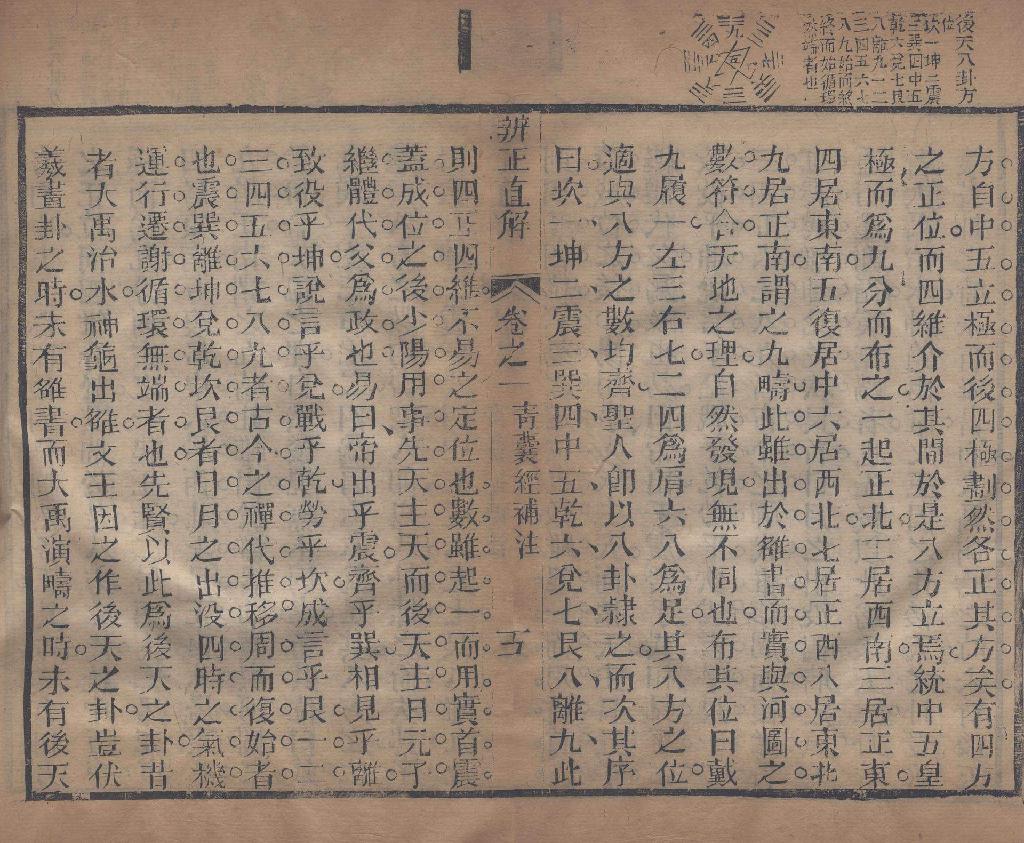 後天八卦方
位
坎一坤二震
三巽四中五
乾六兌七艮
八離九一二
三四五六七
八九始而終
終而始循環
無端者也
方自中五立極而後四極劃然各正其方矣有四方
之正位而四維介於其間於是八方立焉統中五皇
極而爲九分而布之一起正北二居西南三居正東
四居東南五復居中六居西北七居正西八居東北
九居正南謂之九疇此雖出於雒書而實與河圖之
數符合天地之理自然發現無不同也布其位曰戴
九履一左三右七二四爲肩六八爲足其八方之位
適與八方之數均齊聖人卽以八卦隸之而次其序
曰坎一坤二震三巽四中五乾六兌七艮八離九此
辨正直解
卷之一
靑囊經補注
五
則四正四維不易之定位也數雖起一而用實首震
蓋成位之後少陽用事先天主天而後天主日元子
繼體代父爲政也易曰帝出乎震齊乎巽相見乎離
致役乎坤說言乎兌戰乎乾勞乎坎成言乎艮一二
三四五六七八九者古今之禪代推移周而復始者
也震巽離坤兌乾坎艮者日月之出沒四時之氣機
運行遷謝循環無端者也先賢以此爲後天之卦昔
者大禹治水神龜出雒文王因之作後天之卦豈伏
羲畫卦之時未有雒書而大禹演疇之時未有後天